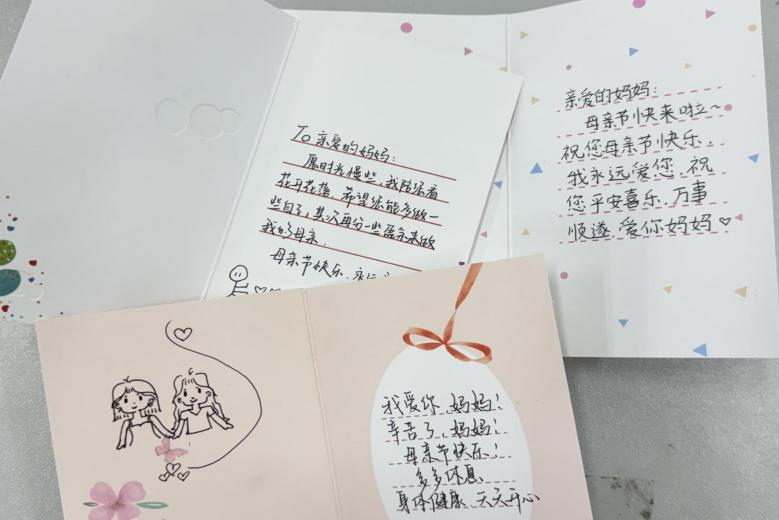 To 亲爱的妈妈：
愿时光慢些，我陪你看
花开花落，希望您能多做一
些自己，其次再分一些盈余来做
我的母亲.
母亲节快乐，永远
亲爱的妈妈：
母亲节快来啦~
祝您母亲节快乐，
我永远爱您，祝
您平安喜乐，万事
顺遂，爱你妈妈♡
我爱你，妈妈！
辛苦了，妈妈！
母亲节快乐！
多多休息
身体健康，天天开心